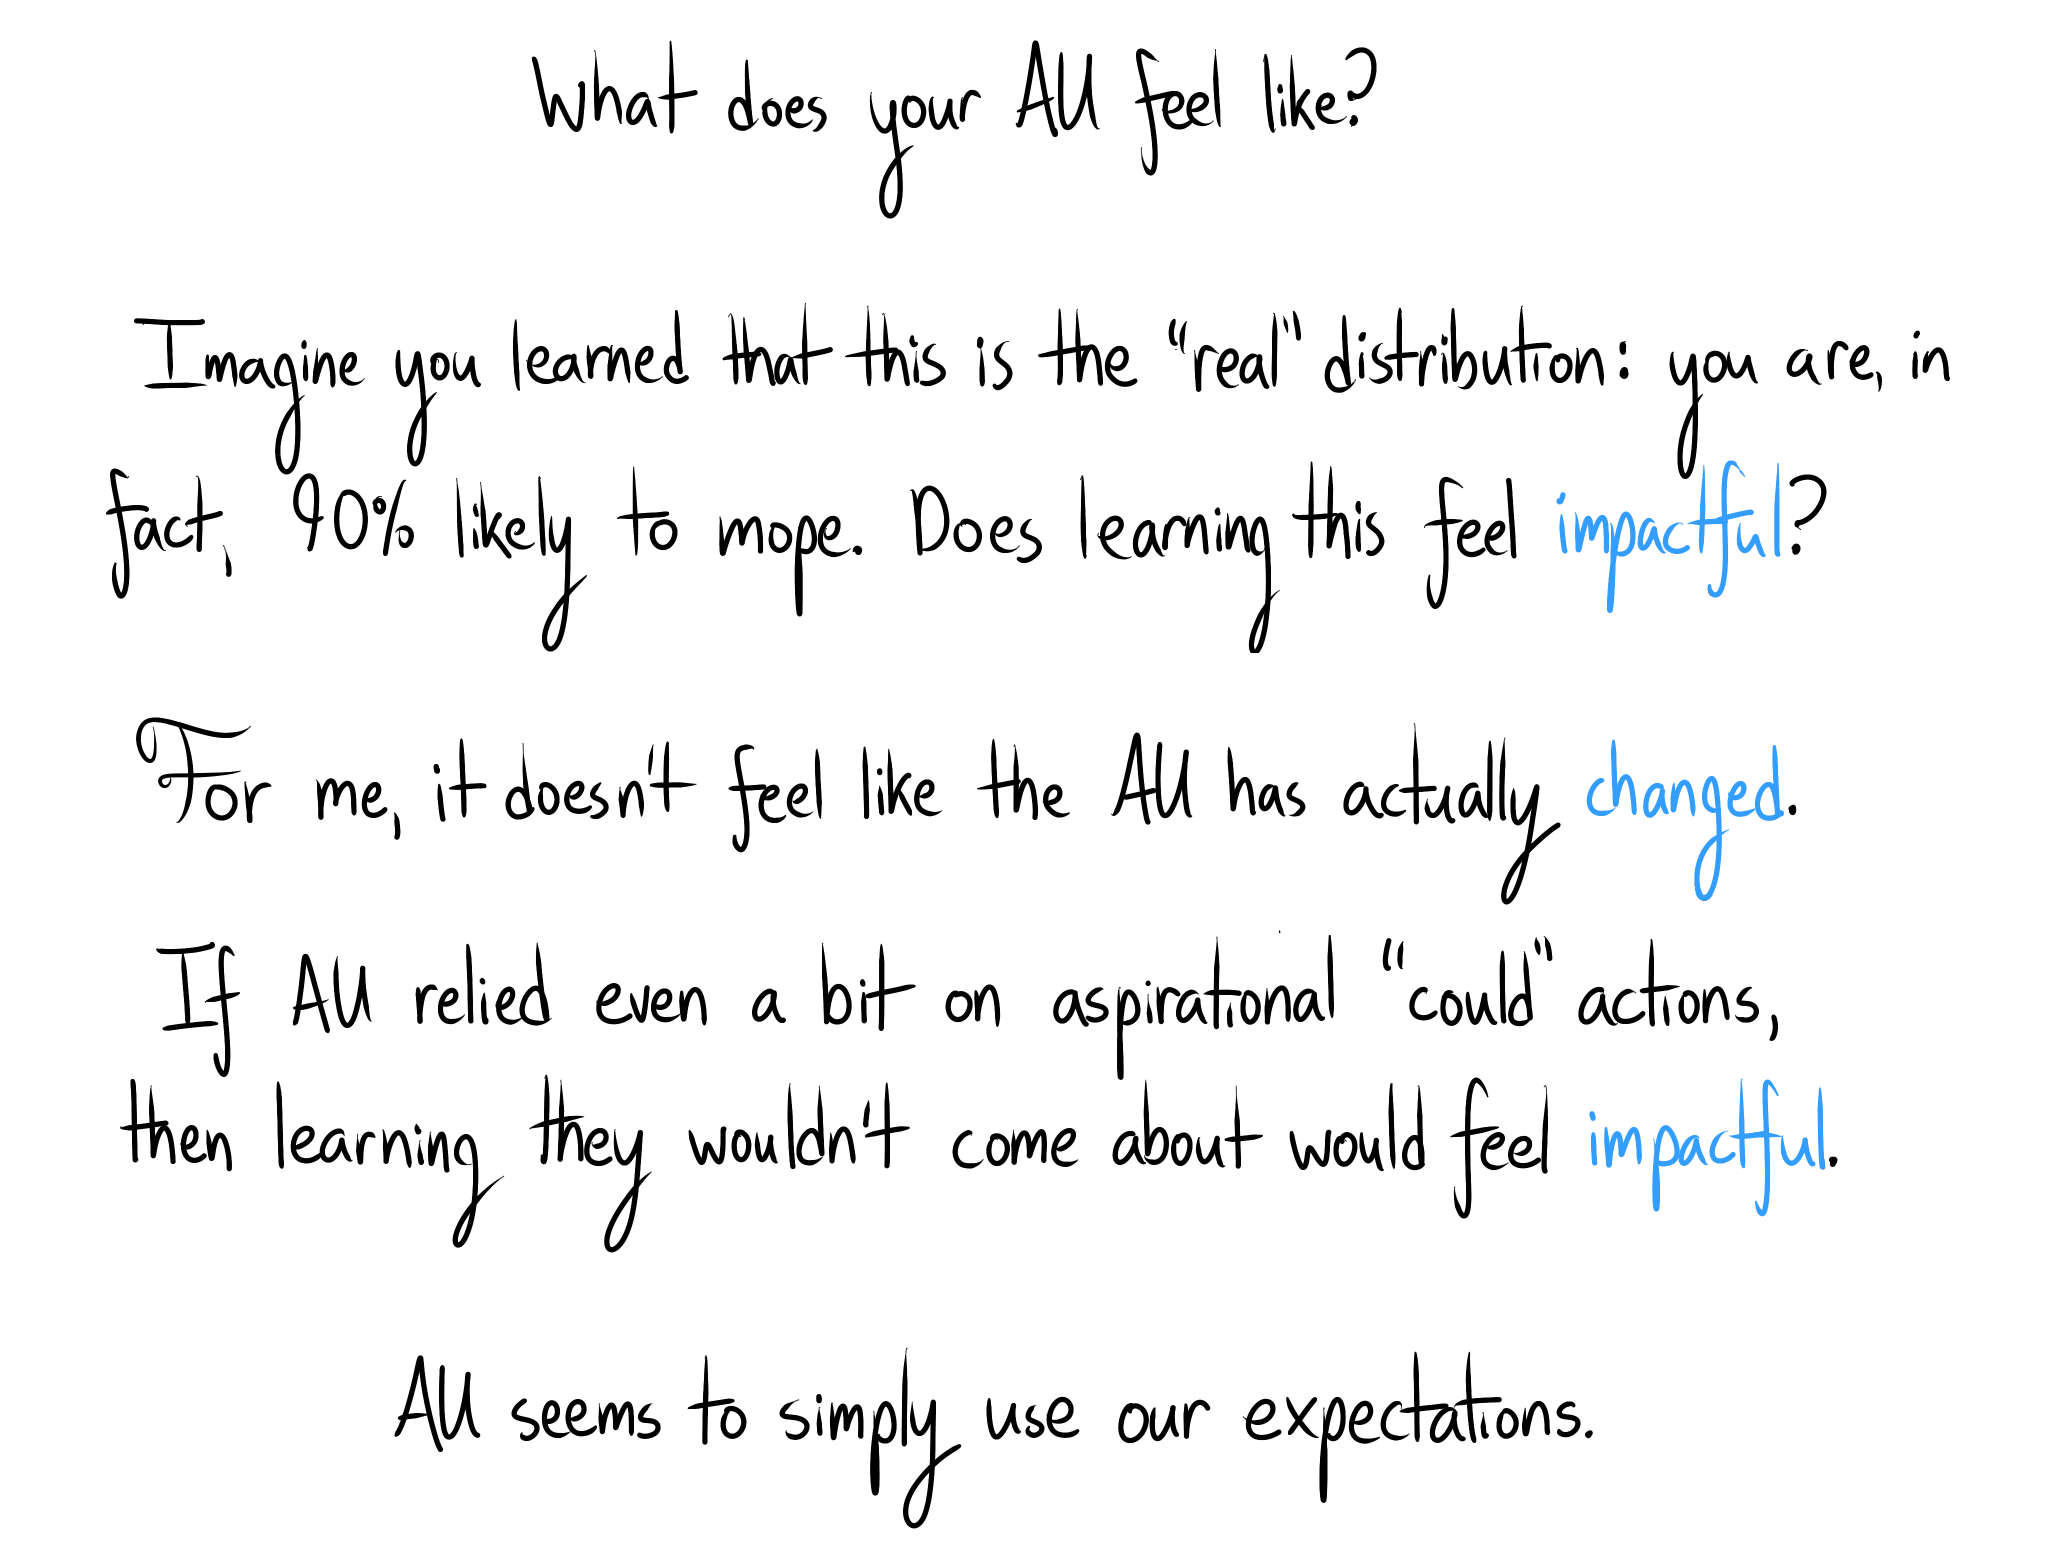 What does your AU feel like?
Imagine you learned that this is the "real" distribution: you are, in
fact, 90% likely to mope. Does learning this feel impactful?
For me, it doesn't feel like the AU has actually changed.
If AU relied even a bit on aspirational "could" actions,
then learning they wouldn't come about would feel impactful.
AU seems to simply use our expectations.